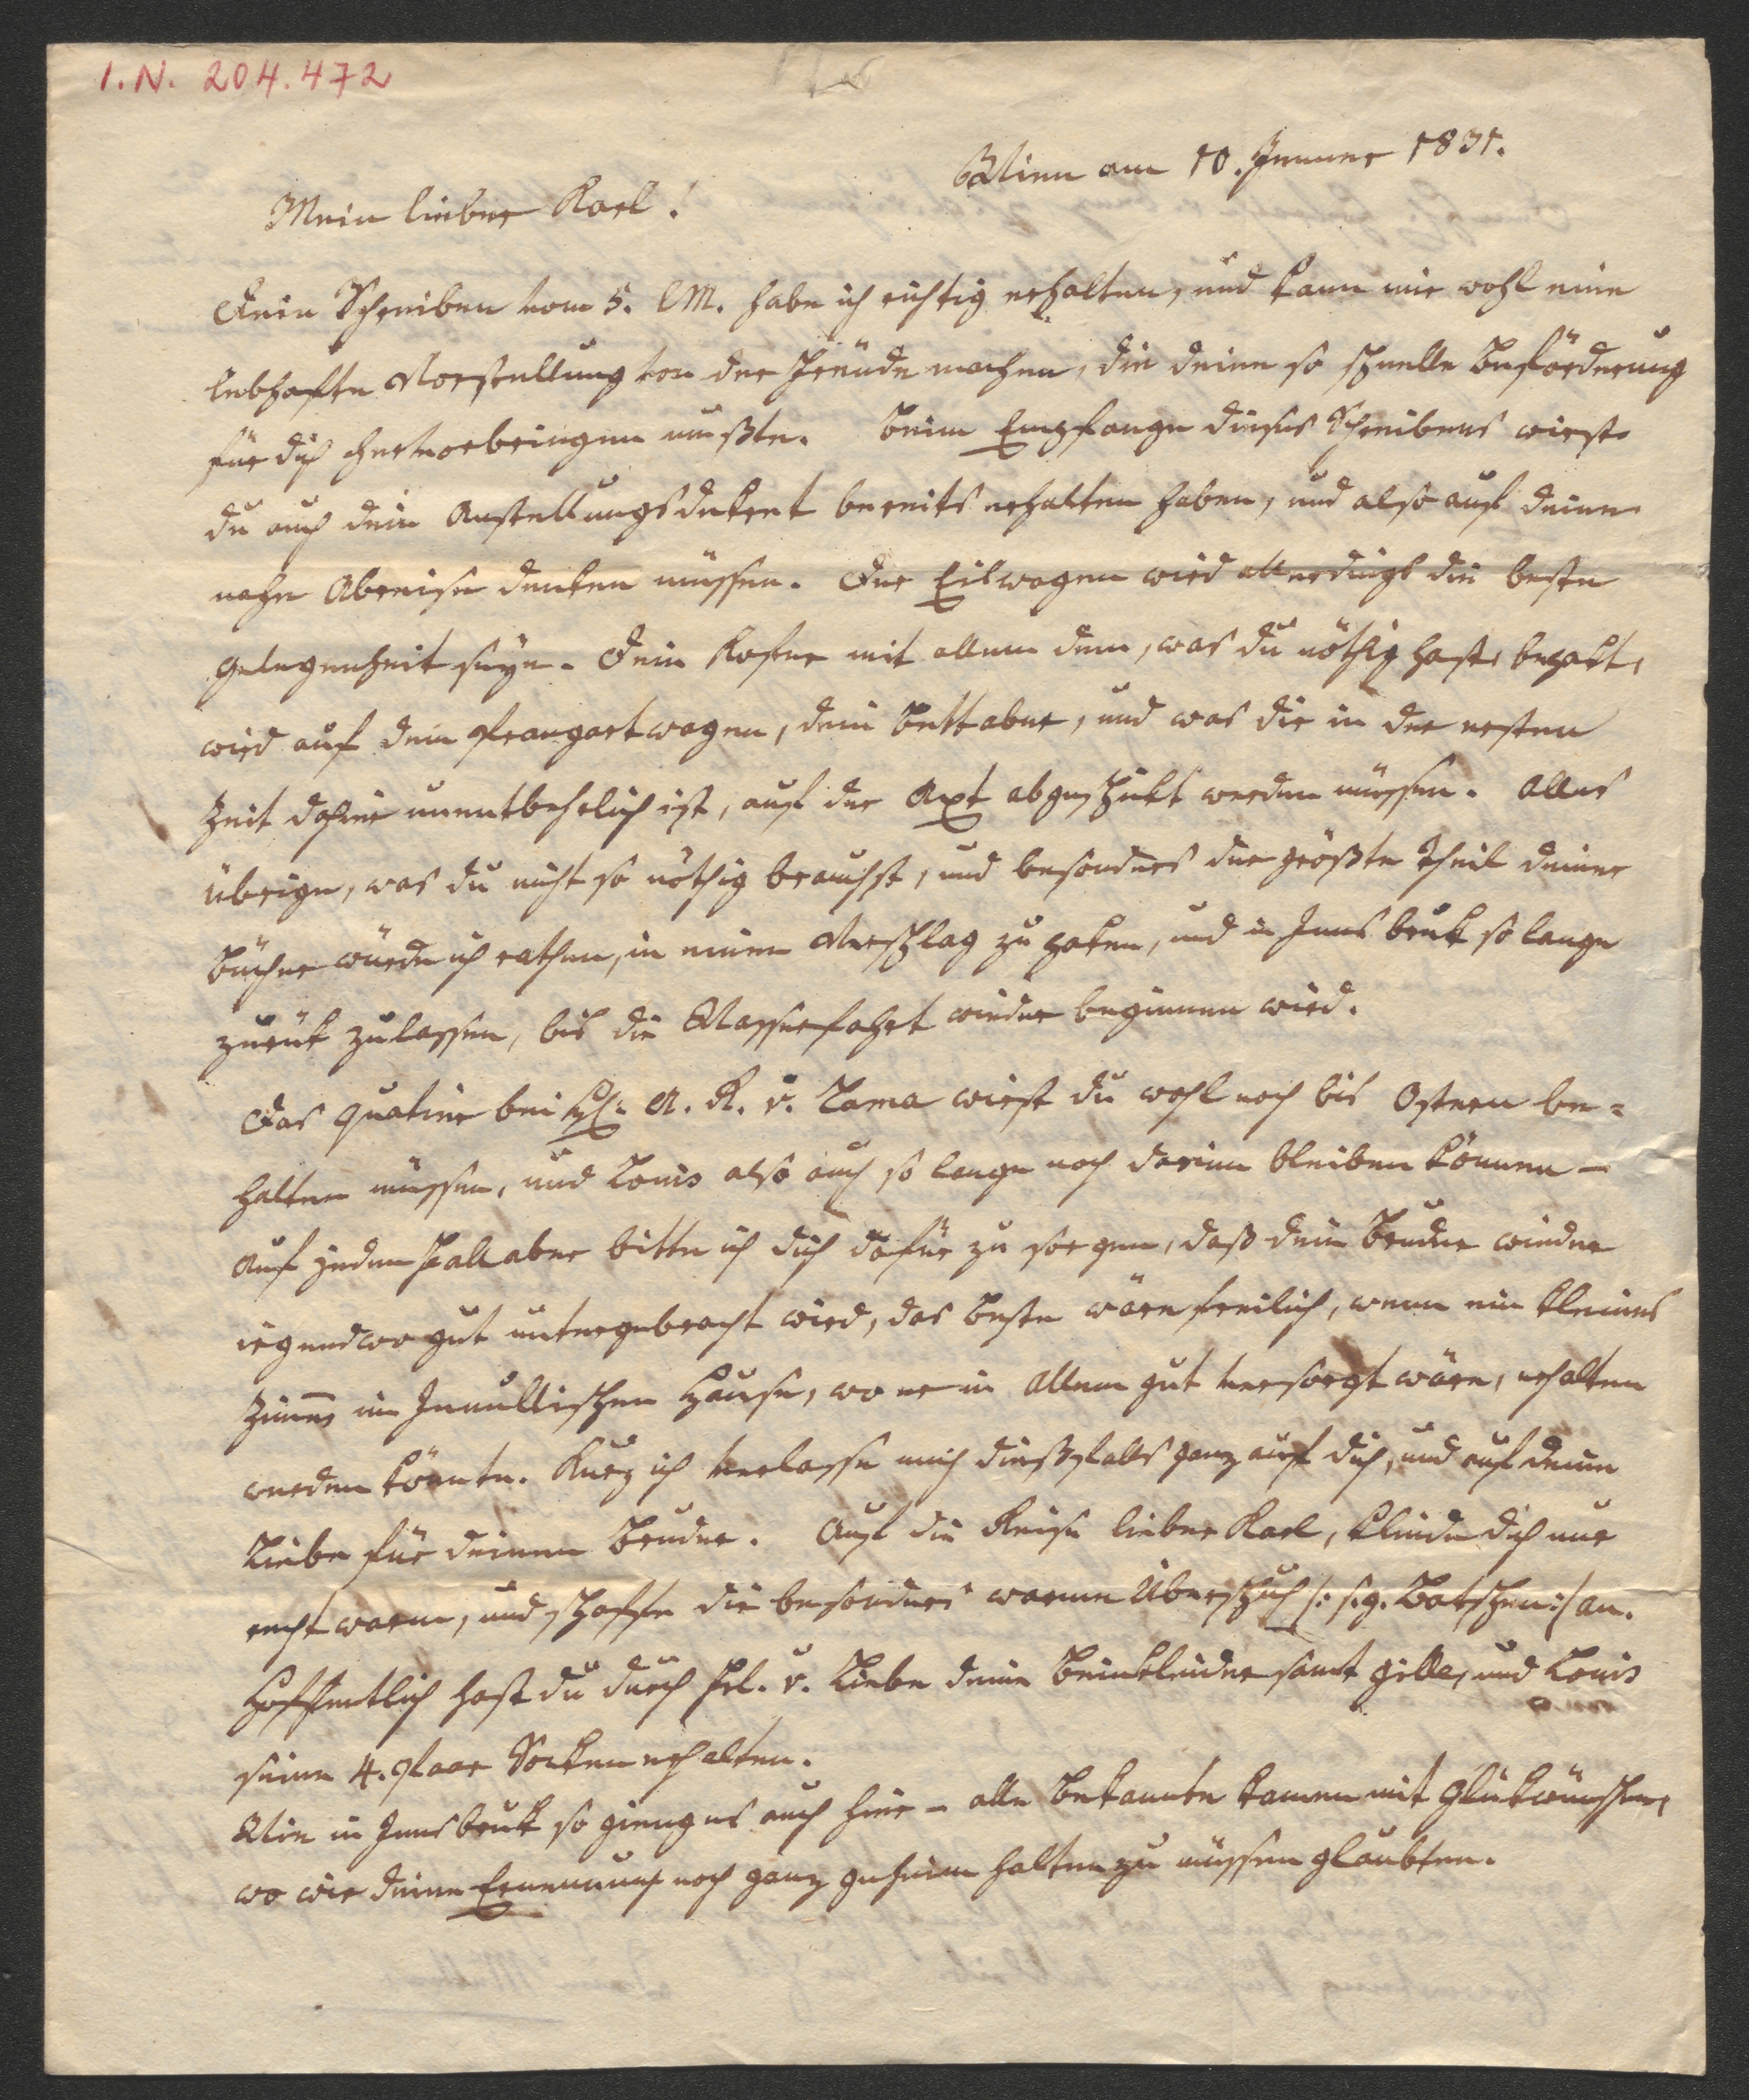 I.N. 204.472
Wien am 10. Jenner 1831.
Mein lieber Karl!
Dein Schreiben vom 5. l M. habe ich richtig erhalten, und kann mir wohl eine
lebhafte Vorstellung von der Freude machen, die deine so schnelle Beförderung
für dich hervorbringen mußte. Beim Empfange dieses Schreibens wirst
du auch dein Anstellungsdekret bereits erhalten haben, und also auf deine
nahe Abreise denken müssen. Der Eilwagen wird allerdings die beste
Gelegenheit seyn. Dein Kofer mit allem dem, was du nöthig hast, bepakt,
wird auf dem Brangartwagen, dein Bett aber, und was dir in der ersten
Zeit dahier unentbehrlich ist, auf der Axt abgeschikt werden müssen. Alles
übrige, was du nicht so nöthig brauchst, und besonders der größte Theil deiner
Bücher würde ich rathen, in einen Verschlag zu paken, und in Innsbruk so lange
zurük zulassen, bis die Wasserfahrt wieder beginnen wird.
Das Quatier bei H: A. R. v. Lama wirst du wohl noch bis Ostern be-
halten müssen, und Louis also auch so lange noch darinn bleiben können –
Auf jeden Fall aber bitte ich dich dafür zu sorgen, daß dein Bruder wieder
irgendwo gut untergebracht wird, das Beste wäre freilich, wenn ein kleines
Zimer im Hause, wo er in Allem gut versorgt wäre, erhalten
werden könnte. Kurz ich verlasse mich dießfalls ganz auf dich, und auf deine
Liebe für deinen Bruder. Auf die Reise lieber Karl, kleide dich nur
recht warm, und schaffe dir besonders warme Überschuh /: s.g. Batschen :/ an.
Hoffentlich hast du durch Frl. v. Liebe deine Beinkleider samt Gille, und Louis
seine 4. Paar Socken erhalten.
Wie in Innsbruk so gieng es auch hier – alle Bekannte kamen mit Glükwünschen,
wo wir deine Ernennung noch ganz geheim halten zu müssen glaubten.